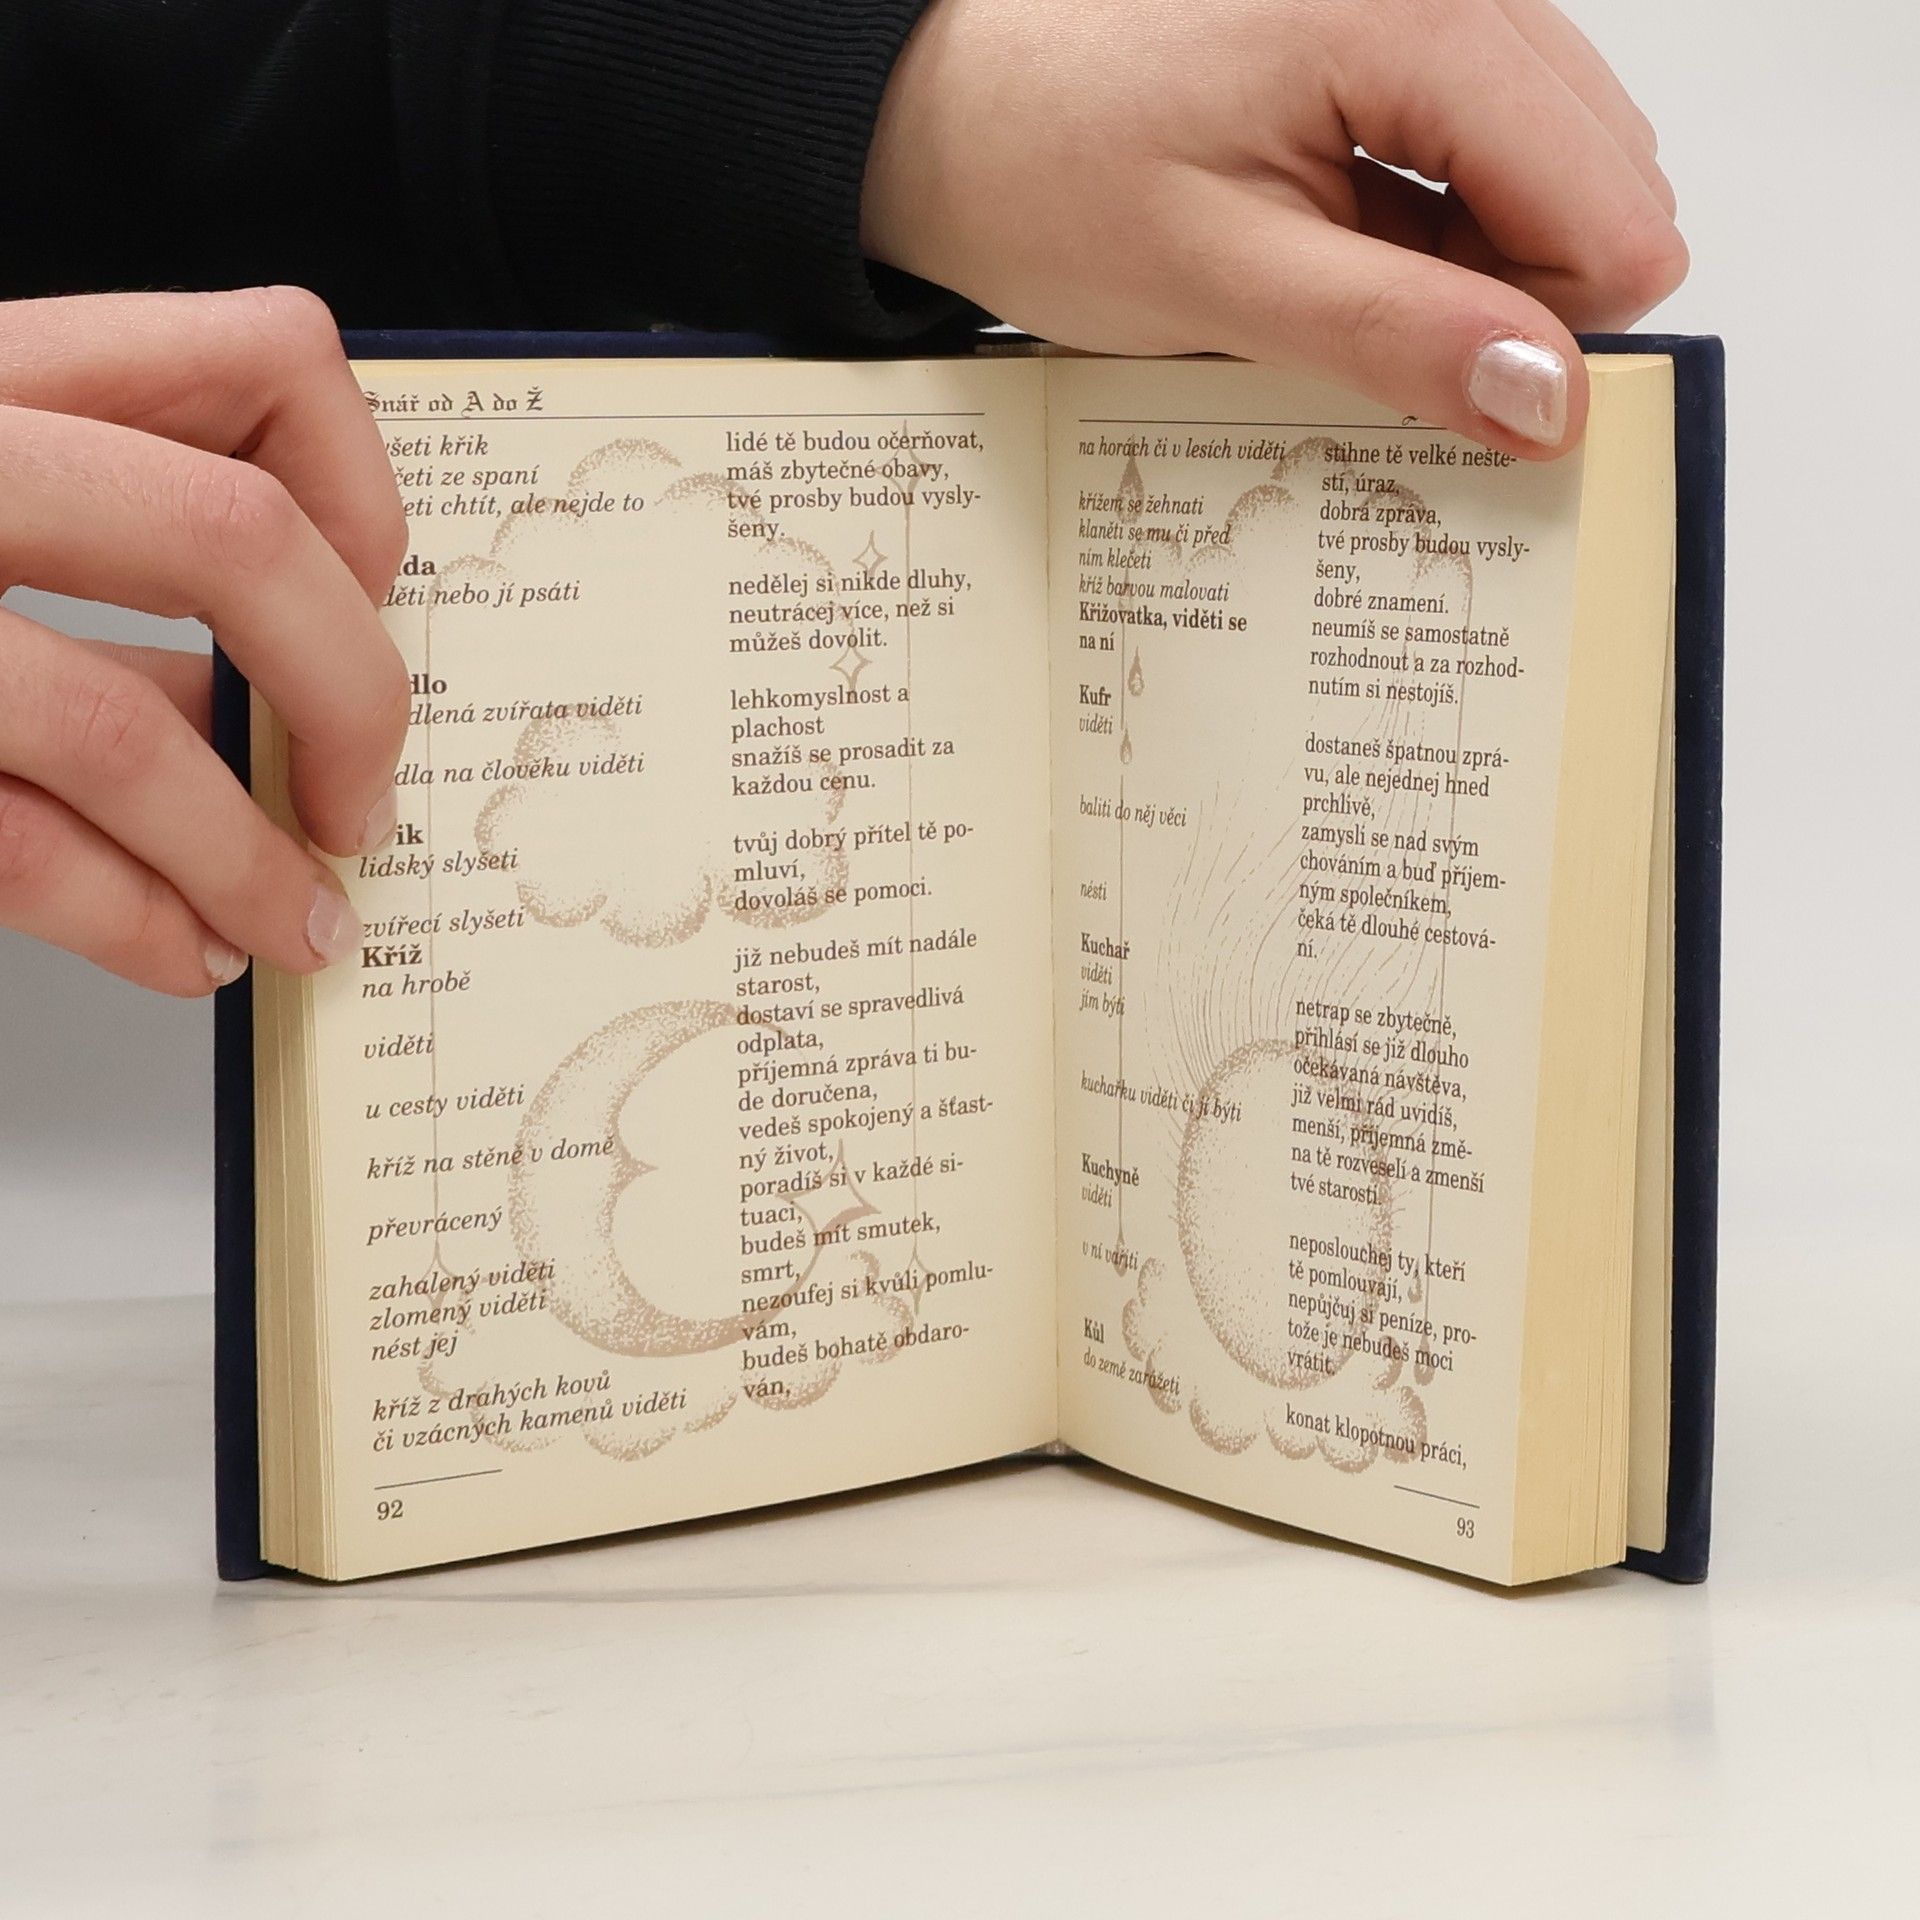 Snář od A do Ž
křik
ze spaní
chtít, ale nejde to
nebo jí psáti
zvířata viděti
na člověku viděti
lidský slyšeti
zvířecí slyšeti
Kříž
na hrobě
viděti
u cesty viděti
kříž na stěně v domě
převrácený
zahalený viděti
zlomený viděti
nést jej
kříž z drahých kovů
či vzácných kamenů viděti
92
lidé tě budou očerňovat,
máš zbytečné obavy,
tvé prosby budou vysly-
šeny.
nedělej si nikde dluhy,
neutrácej více, než si
můžeš dovolit.
lehkomyslnost a
plachost
snažíš se prosadit za
každou cenu.
tvůj dobrý přítel tě po-
mluví,
dovoláš se pomoci.
již nebudeš mít nadále
starost,
dostaví se spravedlivá
odplata,
příjemná zpráva ti bu-
de doručena,
vedeš spokojený a šťast-
ný život,
poradíš si v každé si-
tuaci,
budeš mít smutek,
smrt,
nezoufej si kvůli pomlu-
vám,
budeš bohatě obdaro-
ván,
na horách či v lesích viděti
křížem se žehnati
klaněti se mu či před
ním klečeti
kříž barvou malovati
Křižovatka, viděti se
na ní
Kufr
viděti
baliti do něj věci
nésti
Kuchař
viděti
jím býti
kuchařku viděti či jí býti
Kuchyně
viděti
v ní vařiti
Kůl
do země zarážeti
stihne tě velké neště-
stí, úraz,
dobrá zpráva,
tvé prosby budou vysly-
šeny,
dobré znamení.
neumíš se samostatně
rozhodnout a za rozhod-
nutím si nestojíš.
dostaneš špatnou zprá-
vu, ale nejednej hned
prchlivě,
zamysli se nad svým
chováním a buď příjem-
ným společníkem,
čeká tě dlouhé cestová-
ní.
netrap se zbytečně,
přihlásí se již dlouho
očekávaná návštěva,
již velmi rád uvidíš,
menší, příjemná změ-
na tě rozveselí a zmenší
tvé starosti.
neposlouchej ty, kteří
tě pomlouvají,
nepůjčuj si peníze, pro-
tože je nebudeš moci
vrátit.
konat klopotnou práci,
93